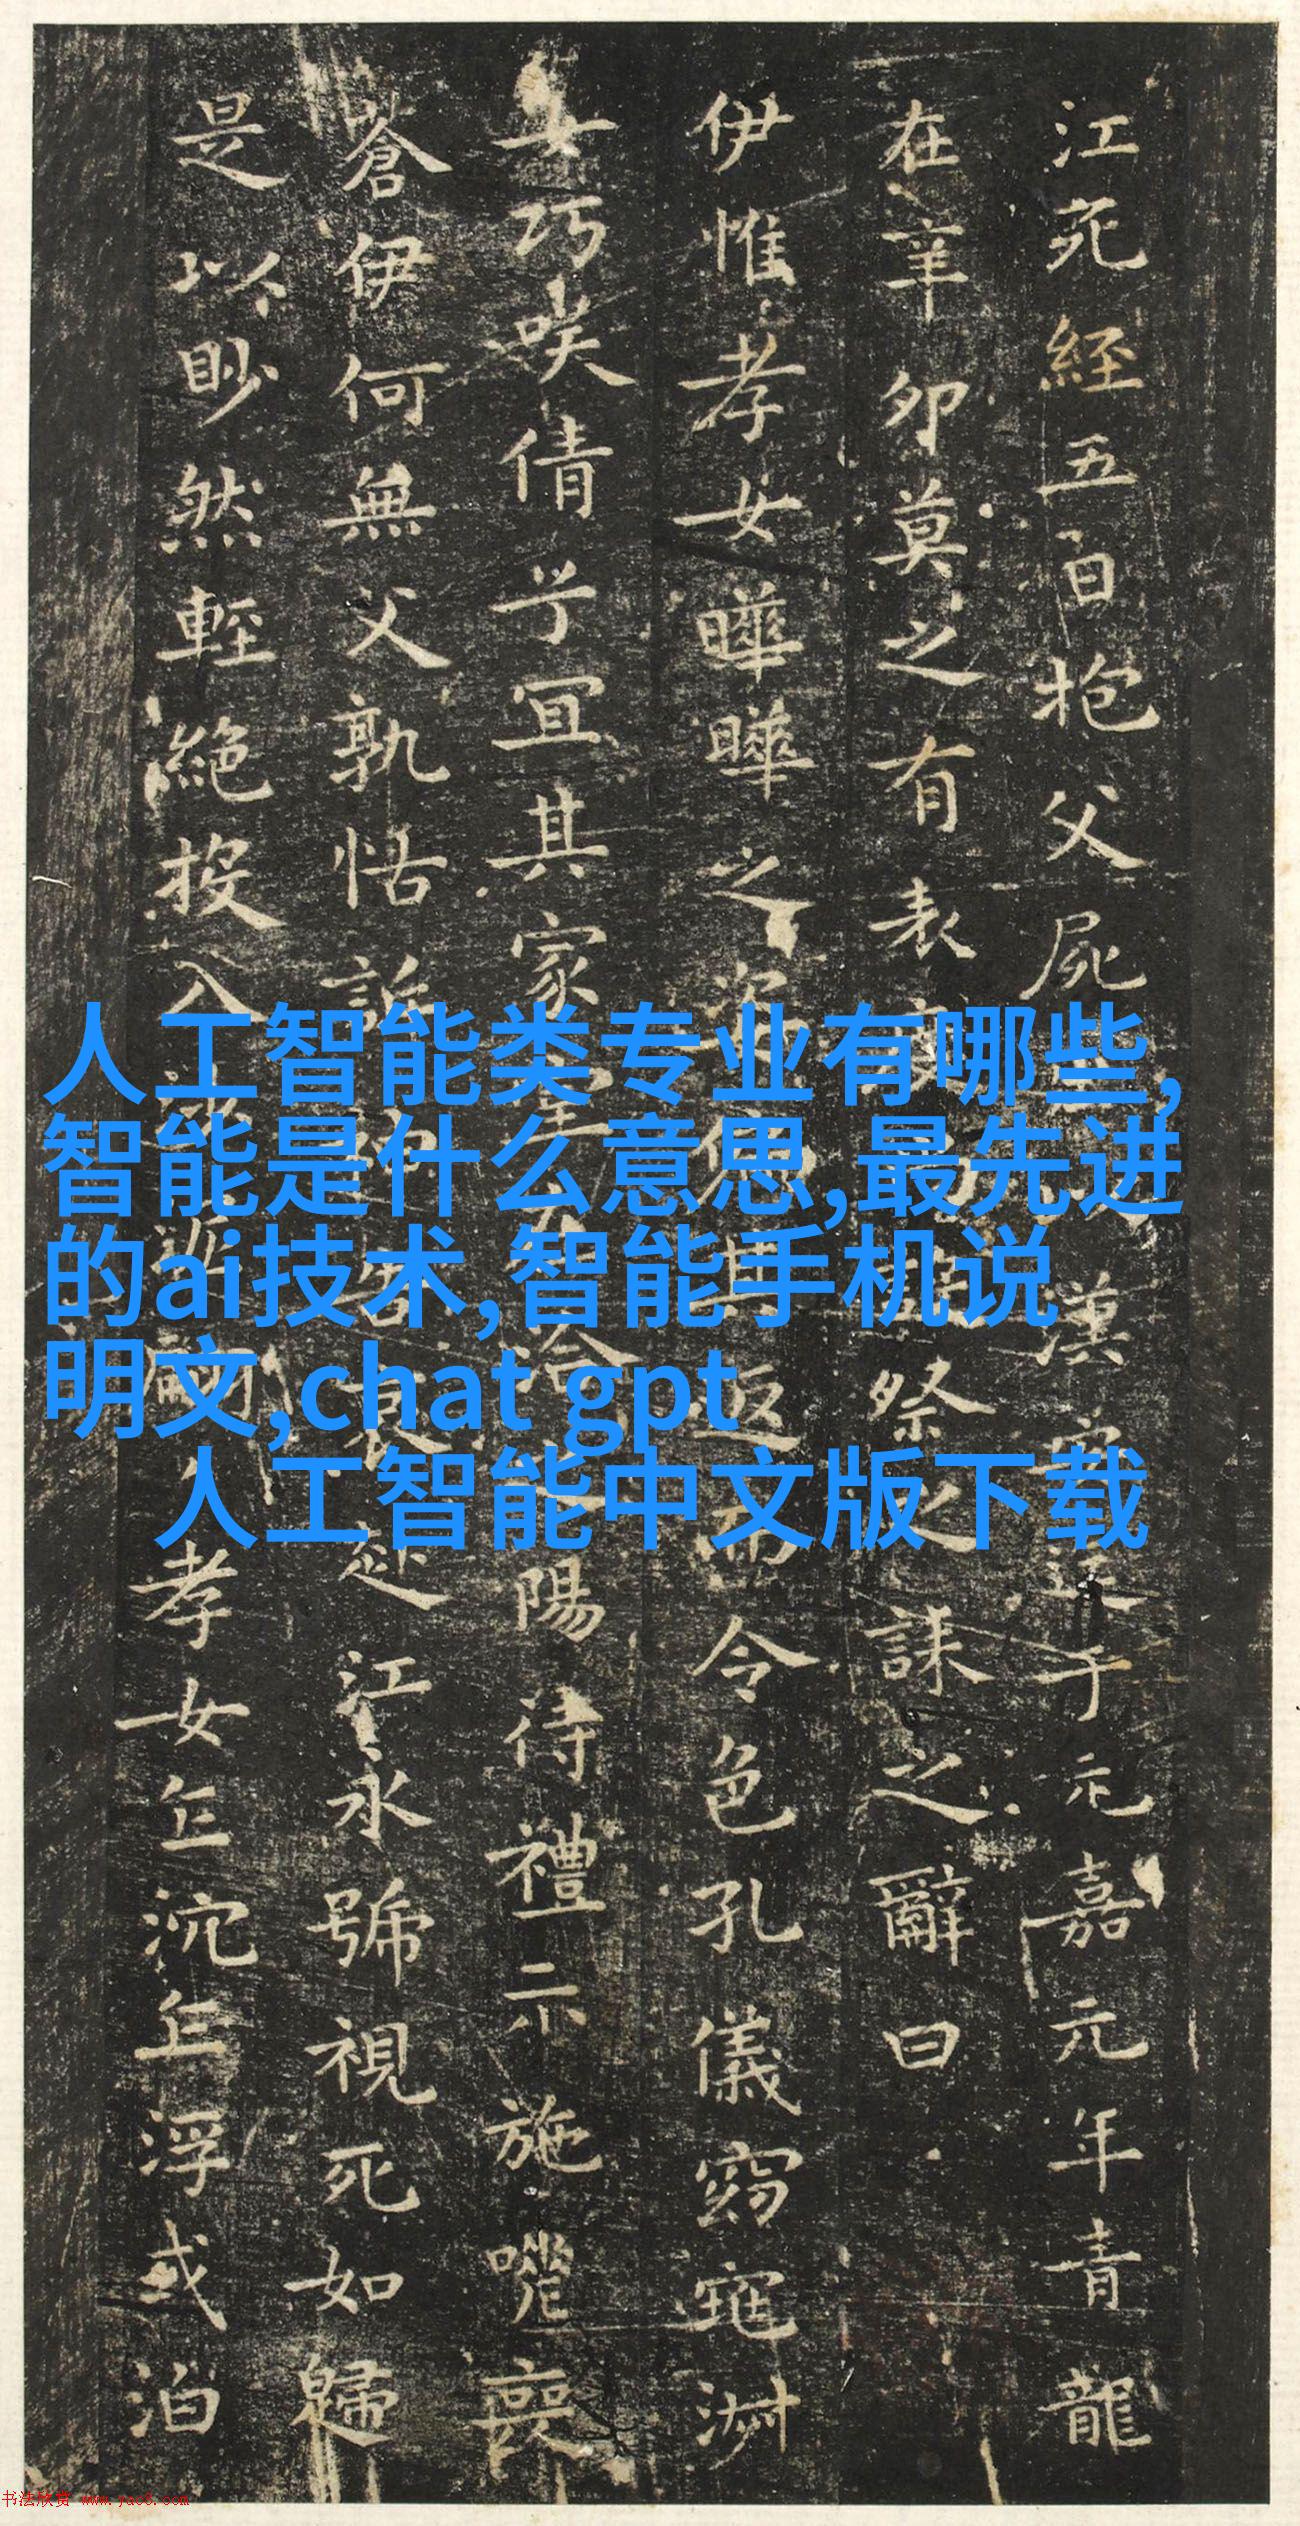 江死經五日抱父屍漢安迄于元嘉元年青龍
在辛卯莫之有表祭之誄之辭曰
伊惟孝女曄曄之姿偏其返而令色孔儀窈窕淑
女巧咲倩兮宜其家室在洽之陽待禮未施嗟喪
蒼伊何無父孰怙訴神告哀赴江永號視死如歸
是以眇然輕絕投入孝女乍沉乍浮或泊
人工智能类专业有哪些,
智能是什么意思,最先进
的ai技术,智能手机说
明文,chat gpt
人工智能中文版下载
书法欣赏 www.yac8.com